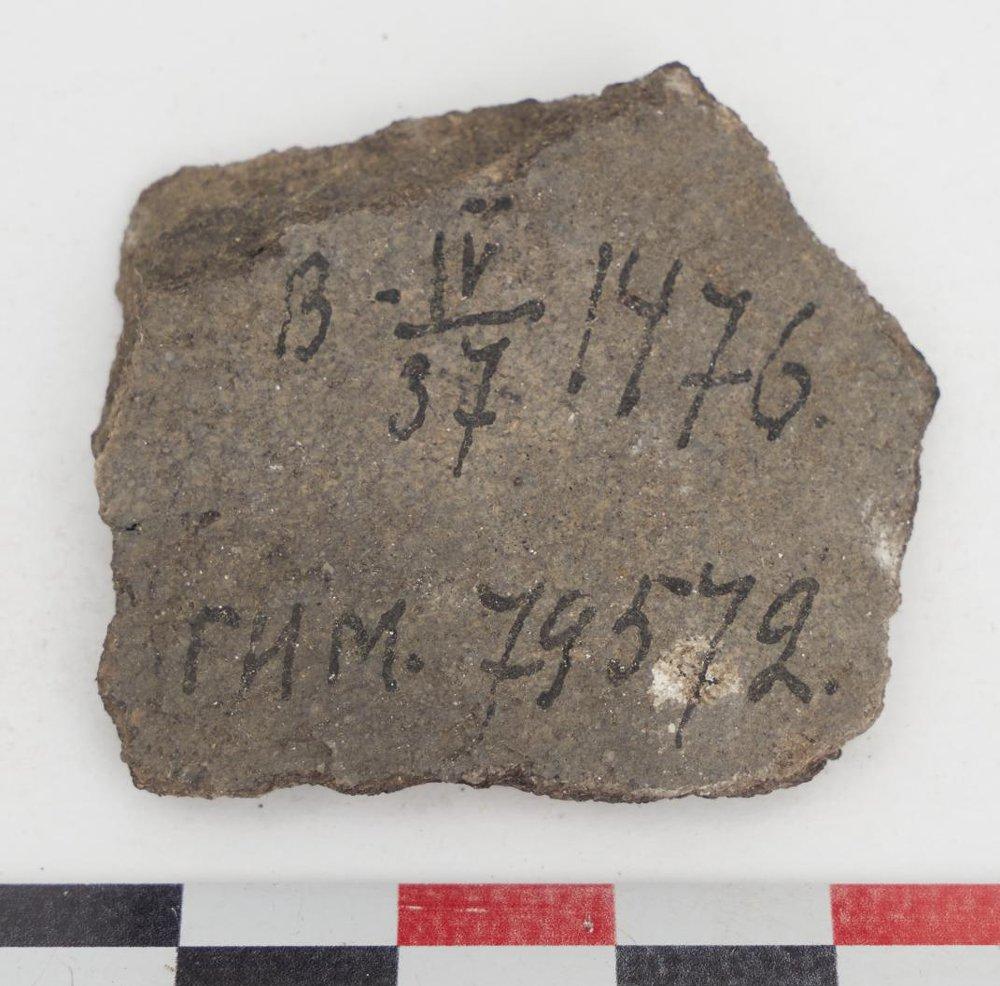 В - IV/37 1476.
ГИМ. 79572.